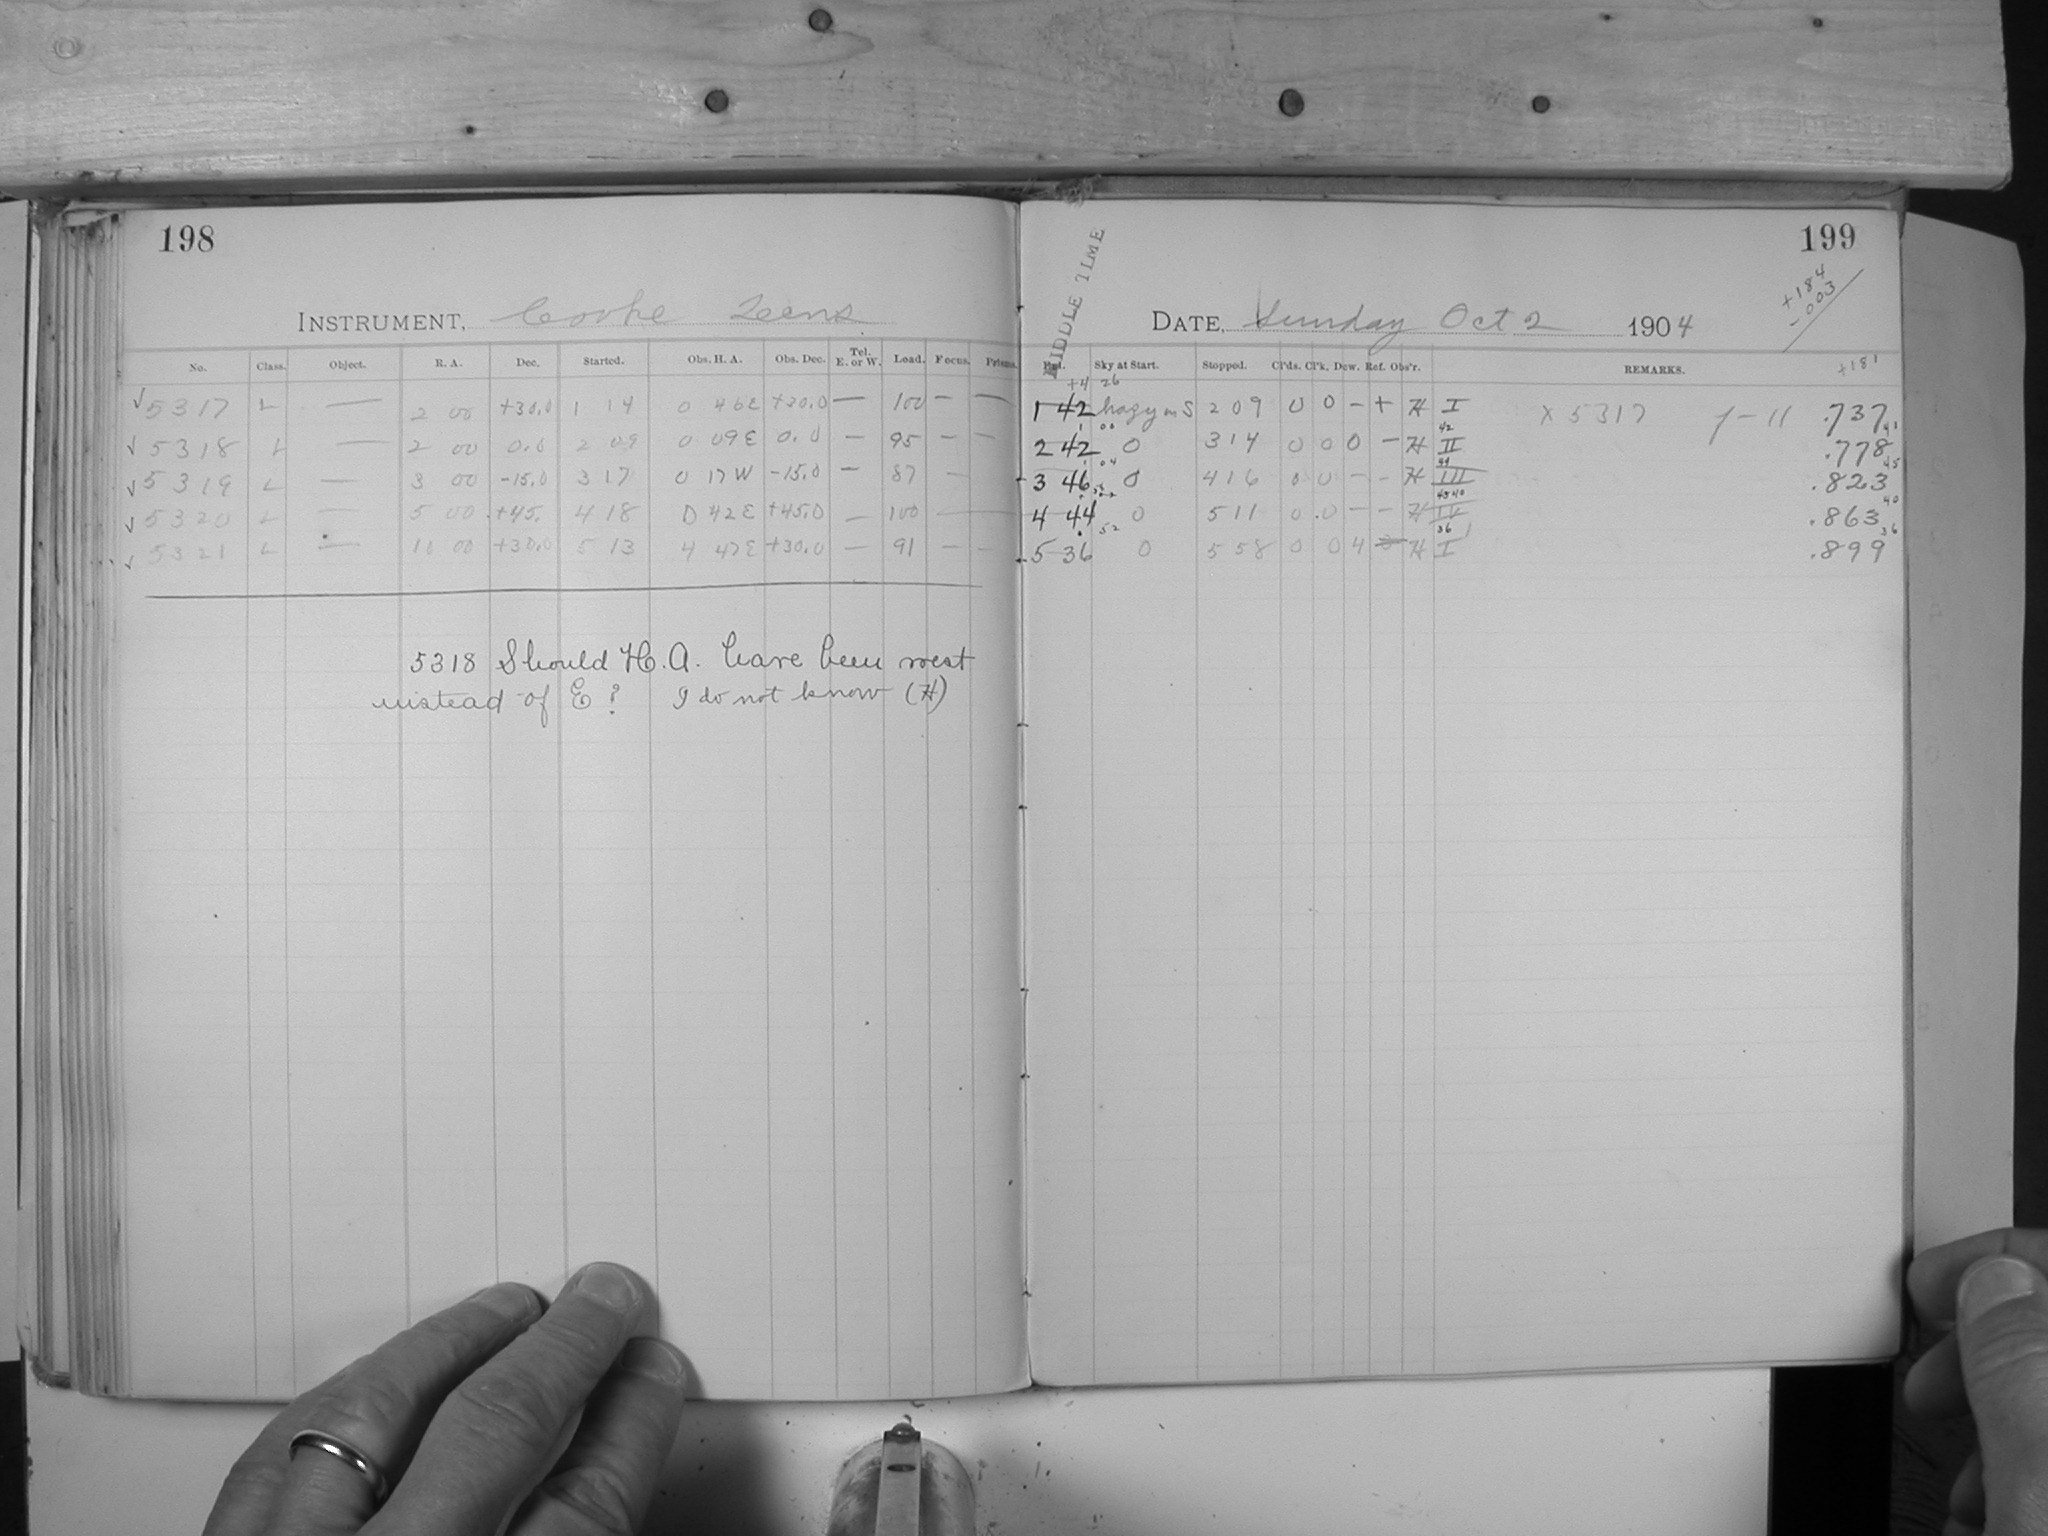 198
INSTRUMENT, Cooke Lens
No. Class. Object. R. A. Dec. Started. Obs. H. A. Obs. Dec. Tel. E. or W. Load. Focus. Prisms.
✓ 5317 L — 2 00 +30.0 1 14 0 46E +30.0 — 100 — —
✓ 5318 L — 2 00 0.0 2 09 0 09E 0.0 — 95 — —
✓ 5319 L — 3 00 -15.0 3 17 0 17W -15.0 — 87 —
✓ 5320 L — 5 00 +45. 4 18 0 42E +45.0 — 100 —
✓ 5321 L — 10 00 +30.0 5 13 4 47E +30.0 — 91 — —
5318 Should H.A. have been west
instead of E? I do not know (H)
199
MIDDLE TIME
+184
-003
DATE, Sunday Oct 2 1904
Sky at Start. Stopped. Cl'ds. Cl'k. Dew. Ref. Obs'r. REMARKS. +181
+4 26
1 42 hazy in S 2 09 0 0 — + H I X 5317 1-11 .737
1 00 42 41
2 42 0 3 14 0 0 0 — H II .778
04 45
3 46 0 4 16 0 0 — — H III .823
40
4 44 0 5 11 0 0 — — H IV .863
52 36 36
5 36 0 5 58 0 0 4 H I .899